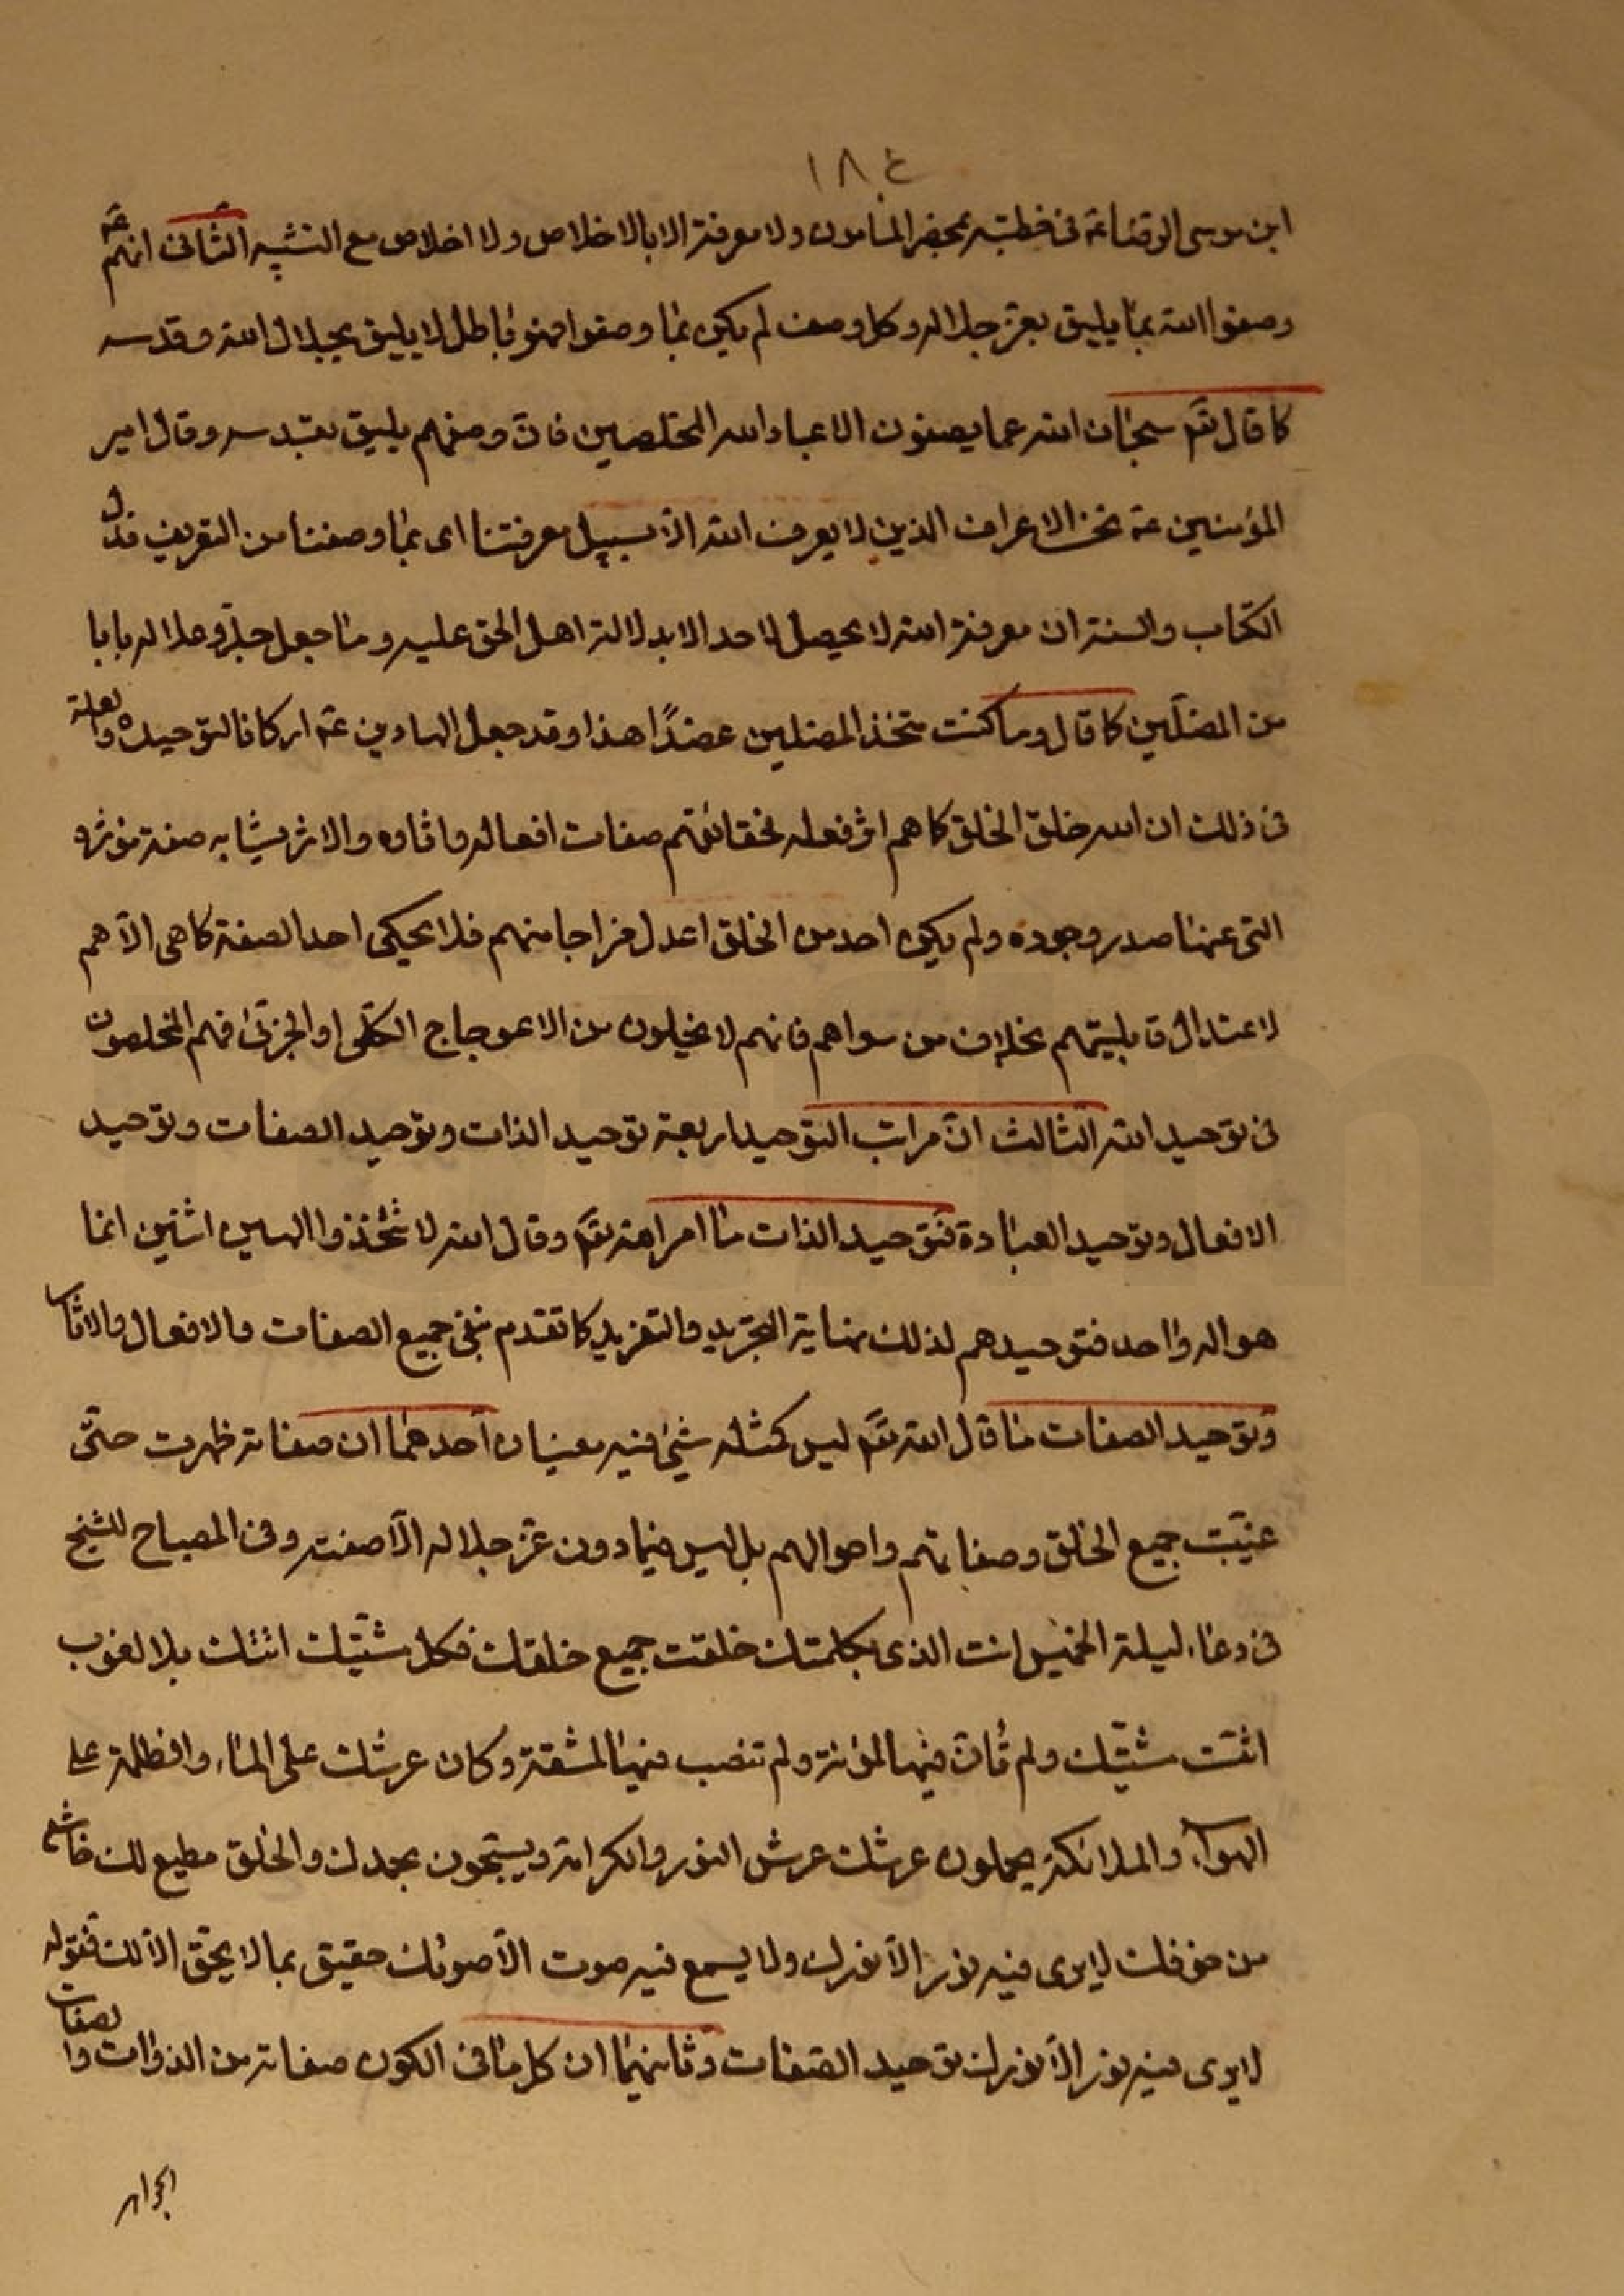 ١٨٤
ابن موسى الرضا عَم فى خطبته بمحضر المامون ولا معرفة الا بالاخلاص ولا اخلاص مع التشبيه الثانى انهم عَم
وصفوا الله بما يليق بعز جلاله وكل وصف لم يكن بما وصفوا فهو باطل لا يليق بجلال الله وقدسه
كا قال تعَم سبحان الله عما يصفون الا عباد الله المخلصين فان وصفهم يليق بقدسه وقال امير
المؤمنين عم نحن الاعراف الذين لا يعرف الله الا بسبيل معرفتنا اى بما وصفنا من التعريف فدل
الكتاب والسنة ان معرفة الله لا يحصل لاحد الا بدلالة اهل الحق عليه وما جعل جل وعلا له بابا
من المضلين كا قال وما كنت متخذ المضلين عضدًا هذا وقد جعل الهادين عم اركانا لتوحيده والعلة
فى ذلك ان الله خلق الخلق كا هم اثر فعله فحقائقهم صفات افعاله واثاره والاثر يشابه صفة مؤثره
التى عنها صدر وجوده ولم يكن احد من الخلق اعدل مزاجا منهم فلا يحكى احد الصفة كا هى الا هم
لاعتدال قابليتهم بخلاف من سواهم فانهم لا يخلون من الاعوجاج الكلى او الجزئى فهم المخلصون
فى توحيد الله الثالث ان مراتب التوحيد اربعة توحيد الذات وتوحيد الصفات وتوحيد
الافعال وتوحيد العبادة فتوحيد الذات ما امر الله تعَم وقال الله لا تتخذوا الهين اثنين انما
هو اله واحد فتوحيدهم لذلك نهاية التجريد والتفريد كا تقدم بنفى جميع الصفات والافعال والاثار
وتوحيد الصفات ما قال الله تعَم ليس كمثله شئ فيه معنيان احدهما ان صفاته ظهرت حتى
غيبت جميع الخلق وصفاتهم واحوالهم بل ليس فيما دون عز جلاله الا صفته وفى المصباح للشيخ
فى دعاء ليلة الخميس انت الذى بكلمتك خلقت جميع خلقك فكل مشيتك اتتك بلا لغوب
اثبت مشيتك ولم تأن فيها لمؤنة ولم تنصب فيها لمشقة وكان عرشك على الماء والظلمة على
الهواء والملائكة يحملون عرشك عرش النور والكرامة ويسبحون بحمدك والخلق مطيع لك خاشع
من خوفك لا يرى فيه نور الا نورك ولا يسمع فيه صوت الا صوتك حقيق بما لا يحق الا لك فقوله
لا يرى فيه نور الا نورك توحيد الصفات وثانيهما ان كل ما فى الكون صفاته من الذوات والصفات